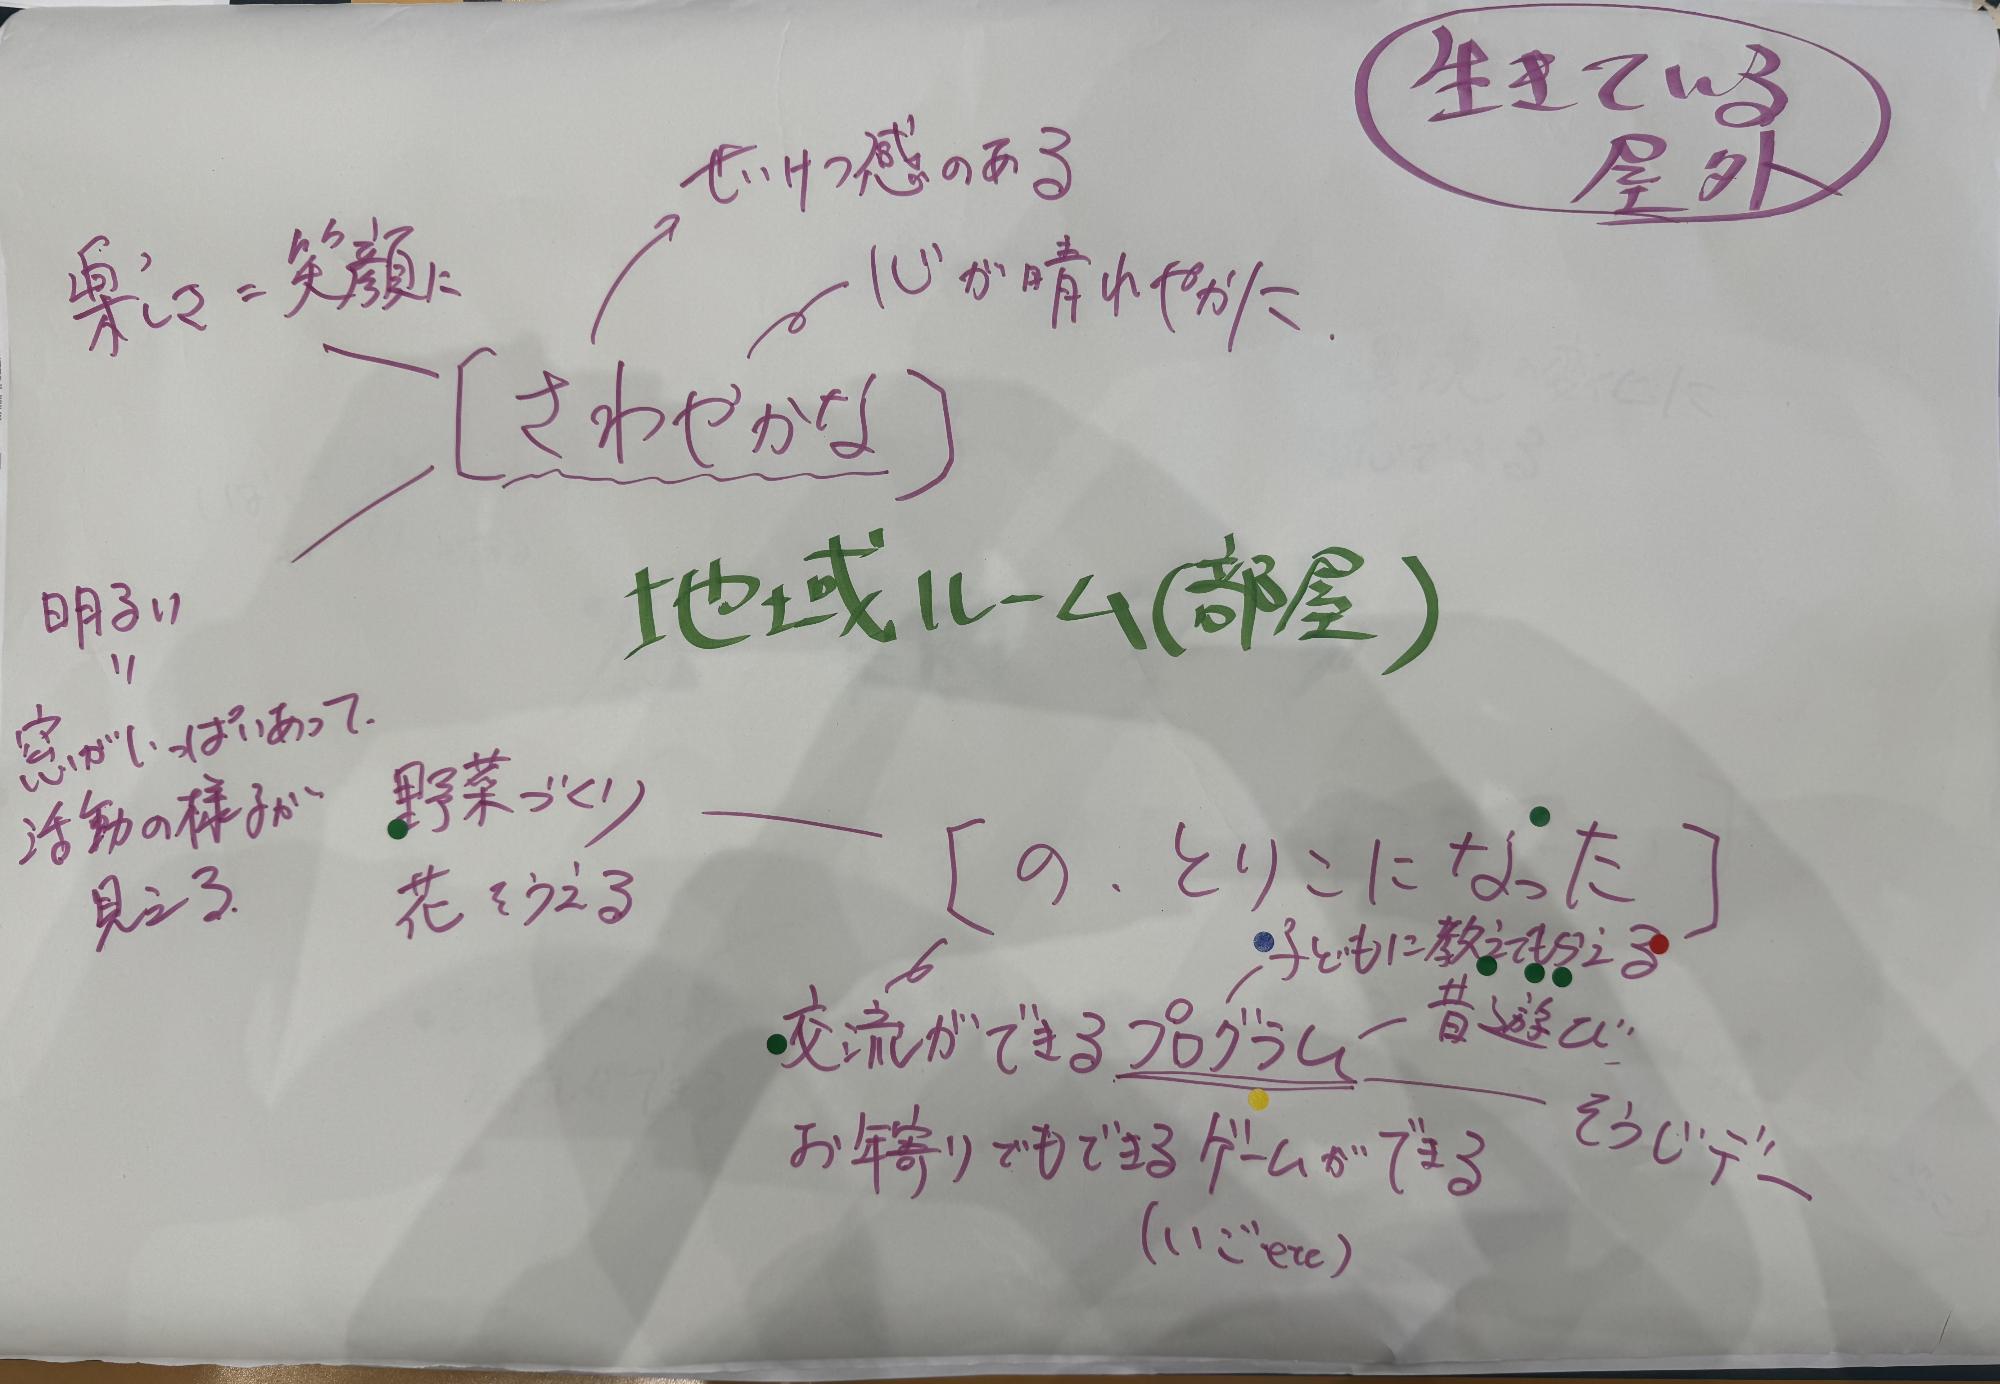 生きている
屋外
せいけつ感のある
心が晴れやかに.
楽しさ=笑顔に
[さわやかな]
地域ルーム(部屋)
明るい
〃
窓がいっぱいあって.
活動の様子が
見える.
野菜づくり
花をうえる
[の.とりこになった]
子どもに教えてもらえる
交流ができるプログラム
昔遊び
そうじデー
お年寄りでもできるゲームができる
(いごetc)